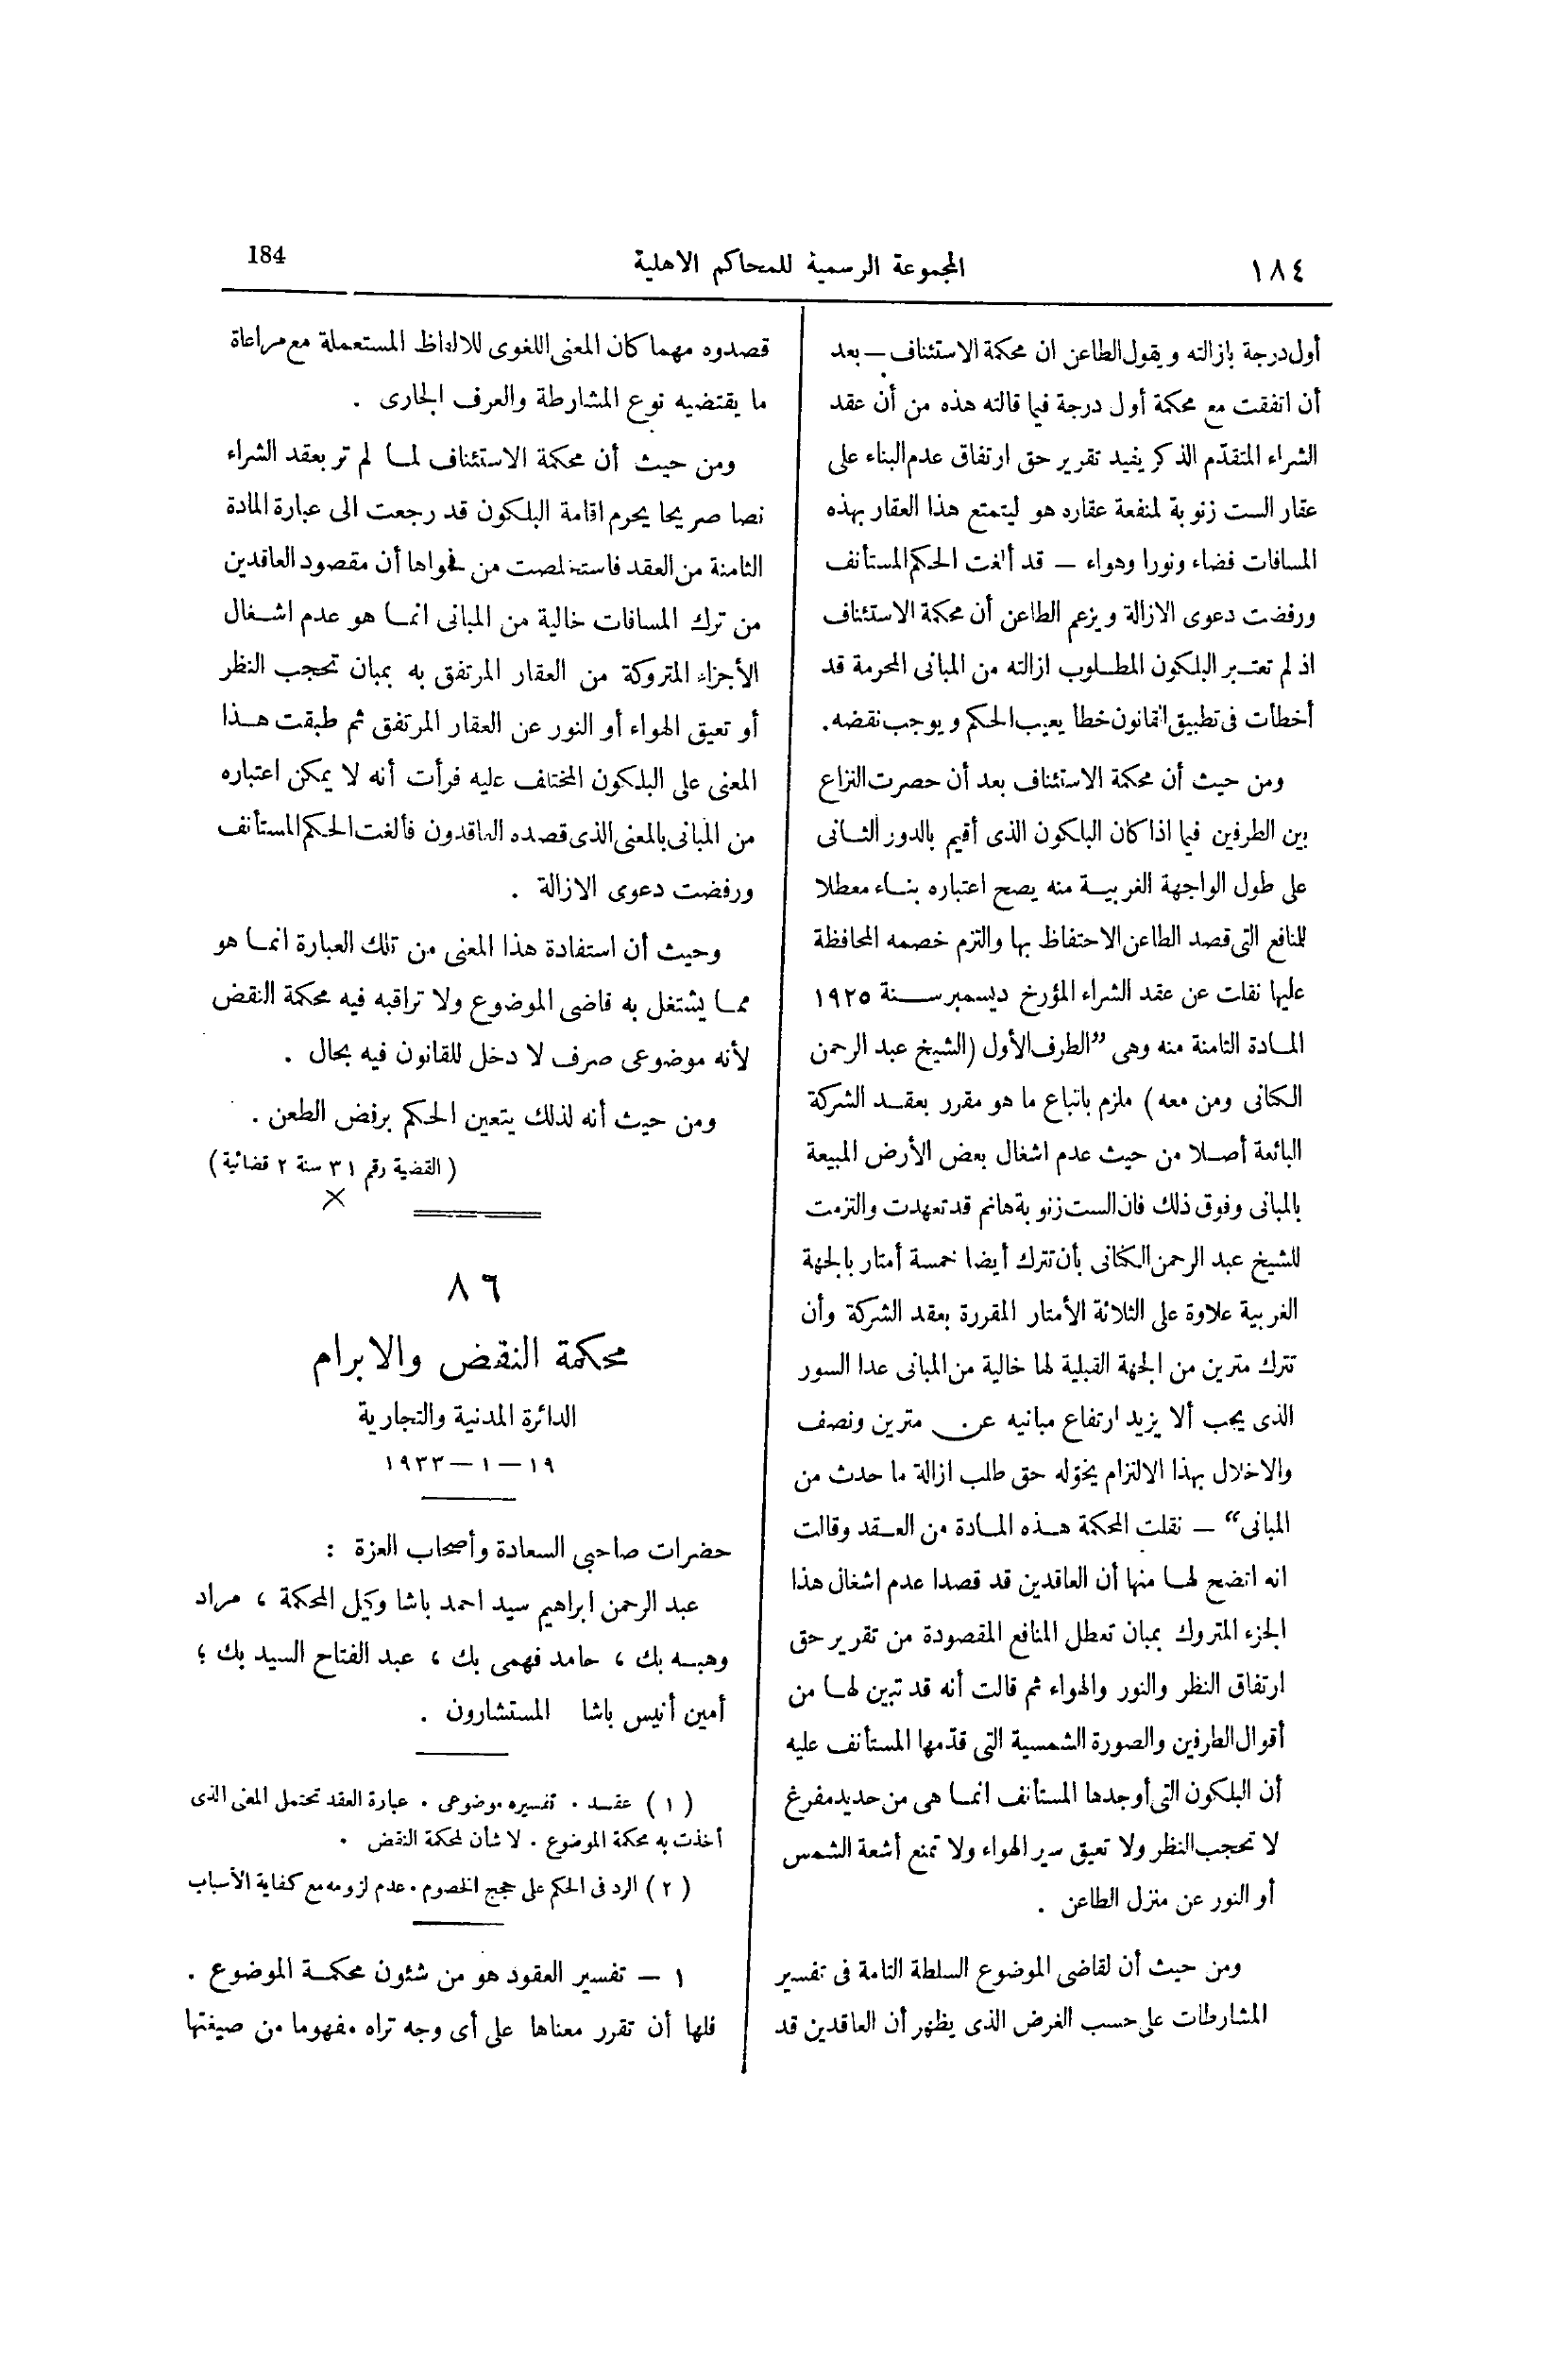 ١٨٤
المجموعة الرسمية للمحاكم الاهلية
184
أول درجة بازالته ويقول الطاعن ان محكمة الاستئناف — بعد
أن اتفقت مع محكمة أول درجة فيما قالته هذه من أن عقد
الشراء المتقدّم الذكر يفيد تقرير حق ارتفاق عدم البناء على
عقار الست زنوبة لمنفعة عقاره هو ليتمتع هذا العقار بهذه
المسافات فضاء ونورا وهواء — قد ألغت الحكم المستأنف
ورفضت دعوى الازالة ويزعم الطاعن أن محكمة الاستئناف
اذ لم تعتبر البلكون المطلوب ازالته من المبانى المحرمة قد
أخطأت فى تطبيق القانون خطأ يعيب الحكم ويوجب نقضه.
ومن حيث أن محكمة الاستئناف بعد أن حصرت النزاع
بين الطرفين فيما اذا كان البلكون الذى أقيم بالدور الثانى
على طول الواجهة الغربية منه يصح اعتباره بناء معطلا
للمنافع التى قصد الطاعن الاحتفاظ بها والتزم خصمه المحافظة
عليها نقلت عن عقد الشراء المؤرخ ديسمبر سنة ١٩٢٥
المادة الثامنة منه وهى ”الطرف الأول (الشيخ عبد الرحمن
الكنانى ومن معه) ملزم باتباع ما هو مقرر بعقد الشركة
البائعة أصلا من حيث عدم اشغال بعض الأرض المبيعة
بالمبانى وفوق ذلك فان الست زنوبة هانم قد تعهدت والتزمت
للشيخ عبد الرحمن الكنانى بأن تترك أيضا خمسة أمتار بالجهة
الغربية علاوة على الثلاثة الأمتار المقررة بعقد الشركة وأن
تترك مترين من الجهة القبلية لها خالية من المبانى عدا السور
الذى يجب ألا يزيد ارتفاع مبانيه عن مترين ونصف
والاخلال بهذا الالتزام يخوّله حق طلب ازالة ما حدث من
المبانى“ — نقلت المحكمة هذه المادة من العقد وقالت
انه اتضح لها منها أن العاقدين قد قصدا عدم اشغال هذا
الجزء المتروك بمبان تعطل المنافع المقصودة من تقرير حق
ارتفاق النظر والنور والهواء ثم قالت أنه قد تبين لها من
أقوال الطرفين والصورة الشمسية التى قدّمها المستأنف عليه
أن البلكون التى أوجدها المستأنف انما هى من حديد مفرغ
لا تحجب النظر ولا تعيق سير الهواء ولا تمنع أشعة الشمس
أو النور عن منزل الطاعن .
ومن حيث أن لقاضى الموضوع السلطة التامة فى تفسير
المشارطات على حسب الغرض الذى يظهر أن العاقدين قد
قصدوه مهما كان المعنى اللغوى للالفاظ المستعملة مع مراعاة
ما يقتضيه نوع المشارطة والعرف الجارى .
ومن حيث أن محكمة الاستئناف لما لم تر بعقد الشراء
نصا صريحا يحرم اقامة البلكون قد رجعت الى عبارة المادة
الثامنة من العقد فاستخلصت من فحواها أن مقصود العاقدين
من ترك المسافات خالية من المبانى انما هو عدم اشغال
الأجزاء المتروكة من العقار المرتفق به بمبان تحجب النظر
أو تعيق الهواء أو النور عن العقار المرتفق ثم طبقت هذا
المعنى على البلكون المختلف عليه فرأت أنه لا يمكن اعتباره
من المبانى بالمعنى الذى قصده العاقدون فألغت الحكم المستأنف
ورفضت دعوى الازالة .
وحيث أن استفادة هذا المعنى من تلك العبارة انما هو
مما يشتغل به قاضى الموضوع ولا تراقبه فيه محكمة النقض
لأنه موضوعى صرف لا دخل للقانون فيه بحال .
ومن حيث أنه لذلك يتعين الحكم برفض الطعن .
(القضية رقم ٣١ سنة ٢ قضائية)
٨٦
محكمة النقض والابرام
الدائرة المدنية والتجارية
١٩ — ١ — ١٩٣٣
حضرات صاحبى السعادة وأصحاب العزة :
عبد الرحمن ابراهيم سيد احمد باشا وكيل المحكمة ، مراد
وهبه بك ، حامد فهمى بك ، عبد الفتاح السيد بك ؛
أمين أنيس باشا المستشارون .
(١) عقد . تفسيره موضوعى . عبارة العقد تحتمل المعنى الذى
أخذت به محكمة الموضوع . لا شأن لمحكمة النقض .
(٢) الرد فى الحكم على حجج الخصوم . عدم لزومه مع كفاية الأسباب
١ — تفسير العقود هو من شئون محكمة الموضوع .
فلها أن تقرر معناها على أى وجه تراه مفهوما من صيغتها